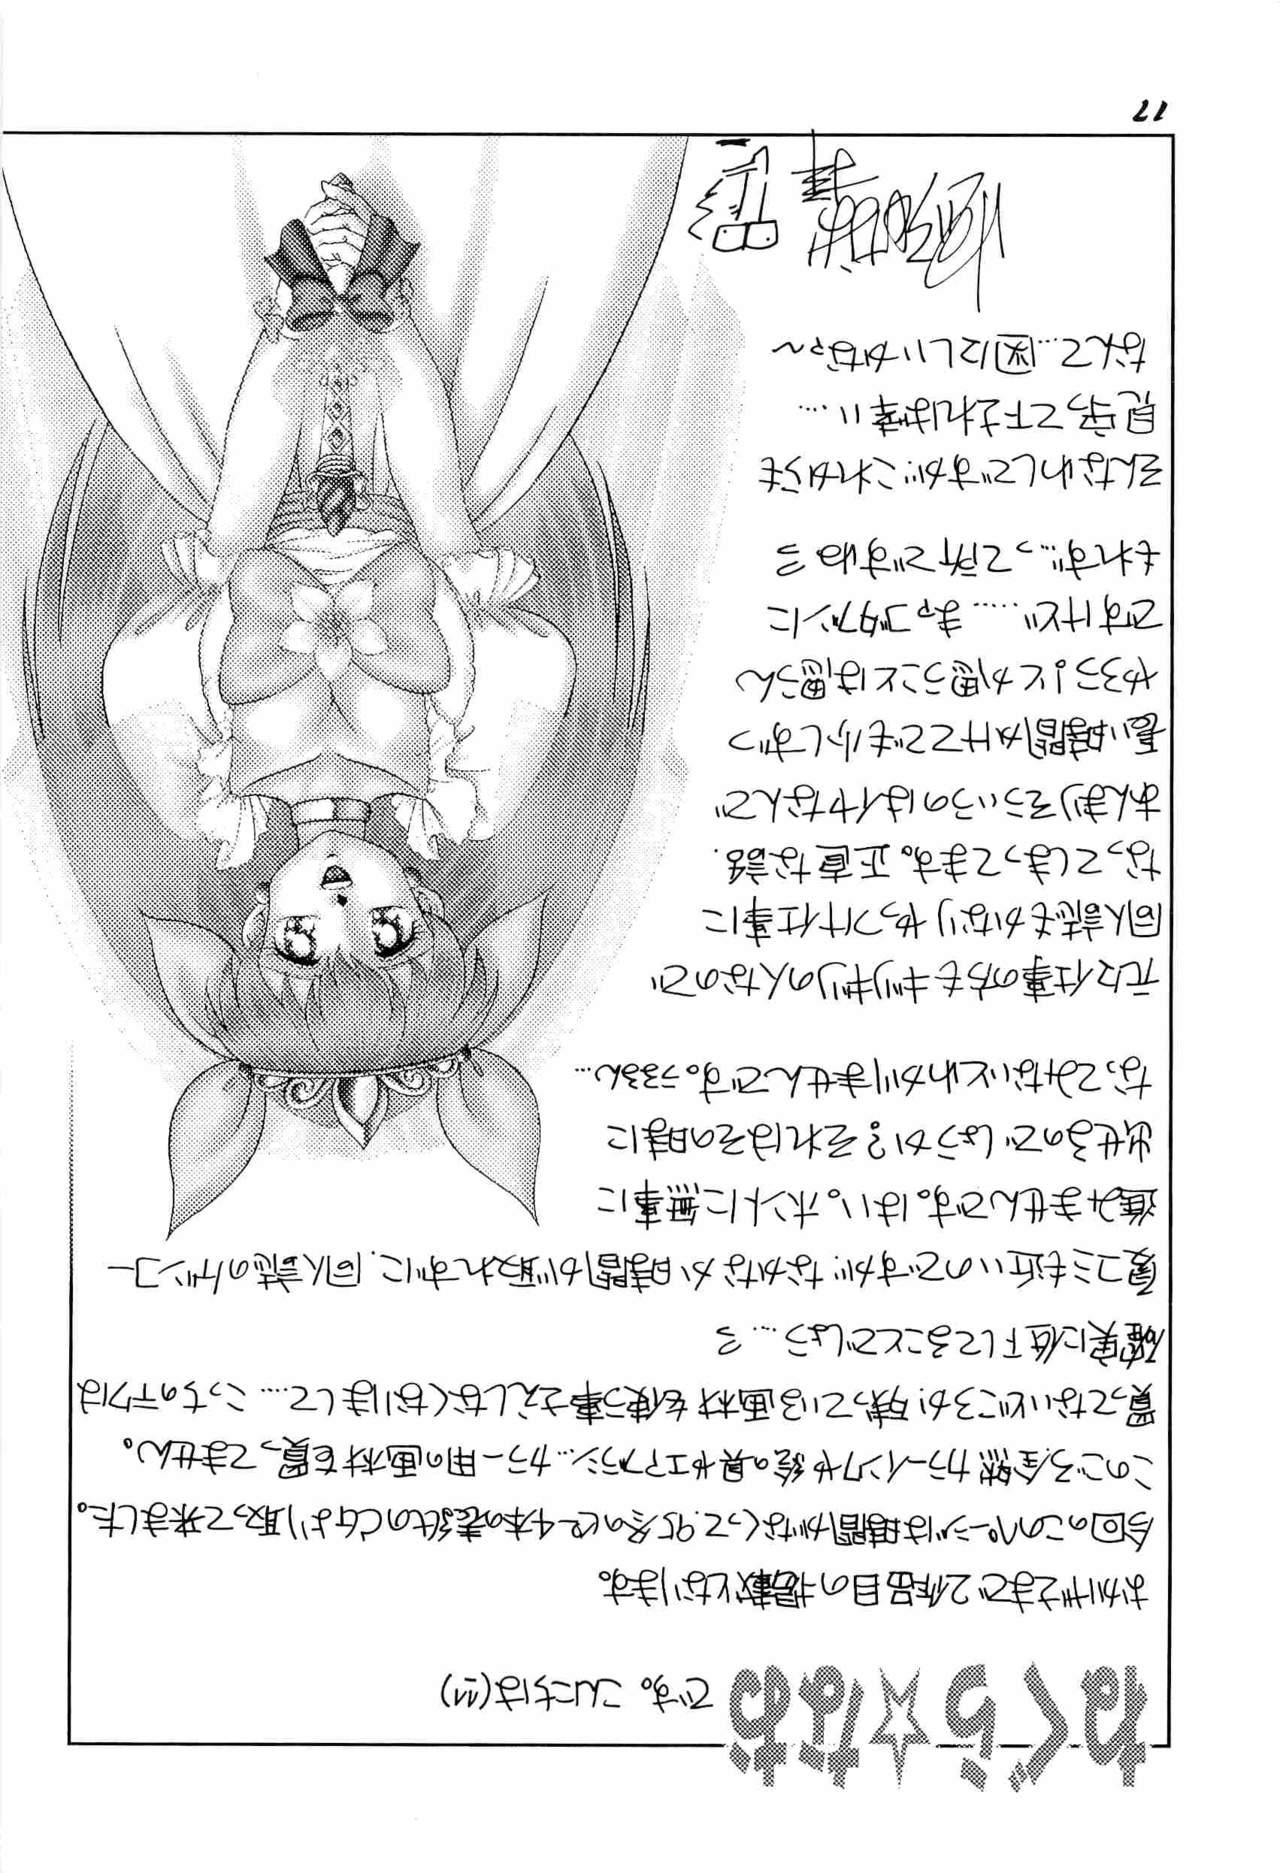 わぐら☆なお です。こんにちは(ii)
おかげさまで2作品目の掲載となります。
今回のこのページは時間がなくって、95冬のピー4本の表紙のCGより取って来ました。
このごろ全然カラーインクや絵の具やエアブラシ…カラー用の画材を買ってません。
買ってないどころか残っている画材を使う事さえしなくなりまして……こっちのテクは
確実に低下してることでしょう…ヨ
夏コミも近いのですが、なかなか時間が取れずに、同人誌のゲンコー
進みませんです。はい。ホントに無事に
出せるのでしょうか?それはその時に
なってみないとわかりませんです。うるるん…
元々仕事の方もギリギリの人なので
同人誌もかなりやっつけ仕事に
なってしまってます。正直な話、
あんまりそういうのはイヤなんで
長い時間かけてでも少しずつ
やろう!とか思うことは思うん
ですけど……まァゴタブンに
もれず…って所ですねヨ
そんなわしですが、これからも
見守って下されば幸い…
なんて…図にしいかなァ~
17